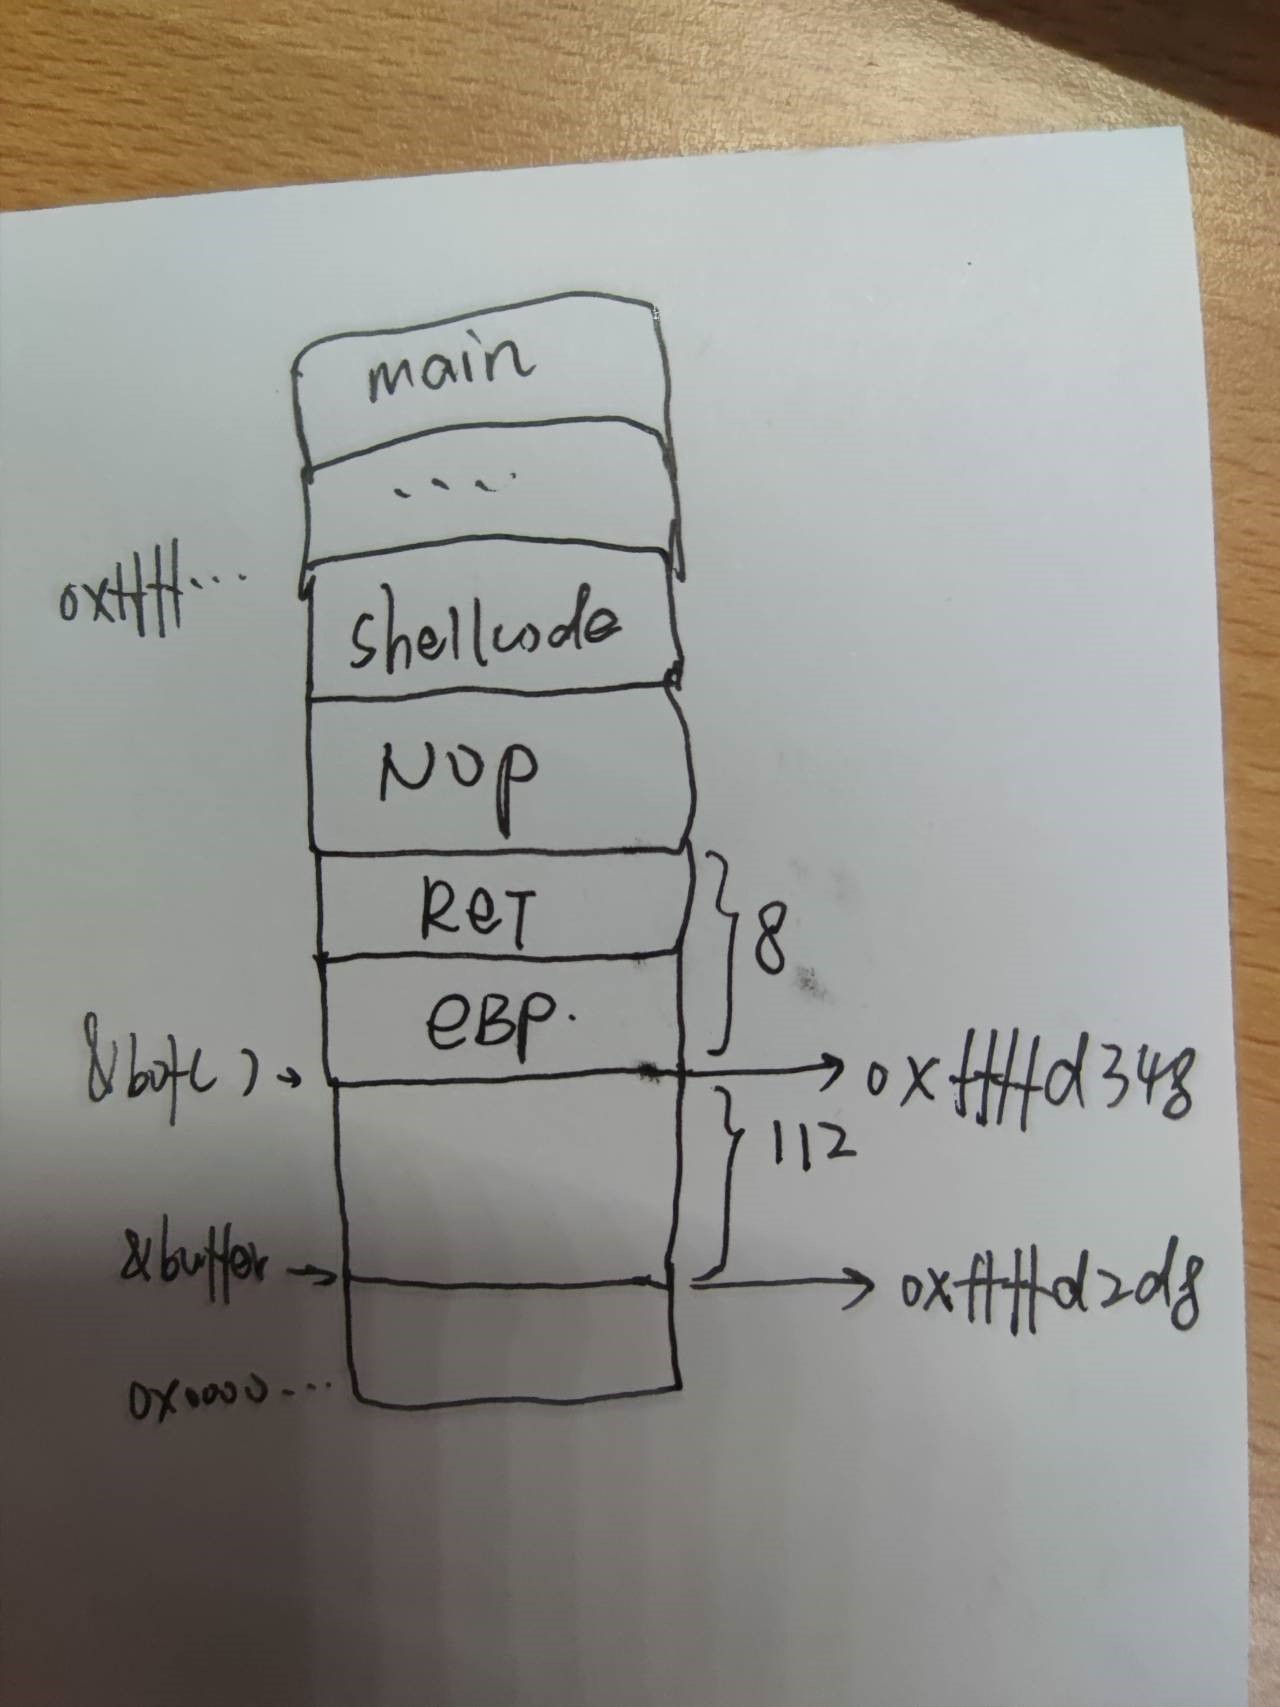 main
....
0xffff...
shellcode
NOP
RET
8
EBP.
&bof()
0xffffd348
112
&buffer
0xffffd2d8
0x0000...